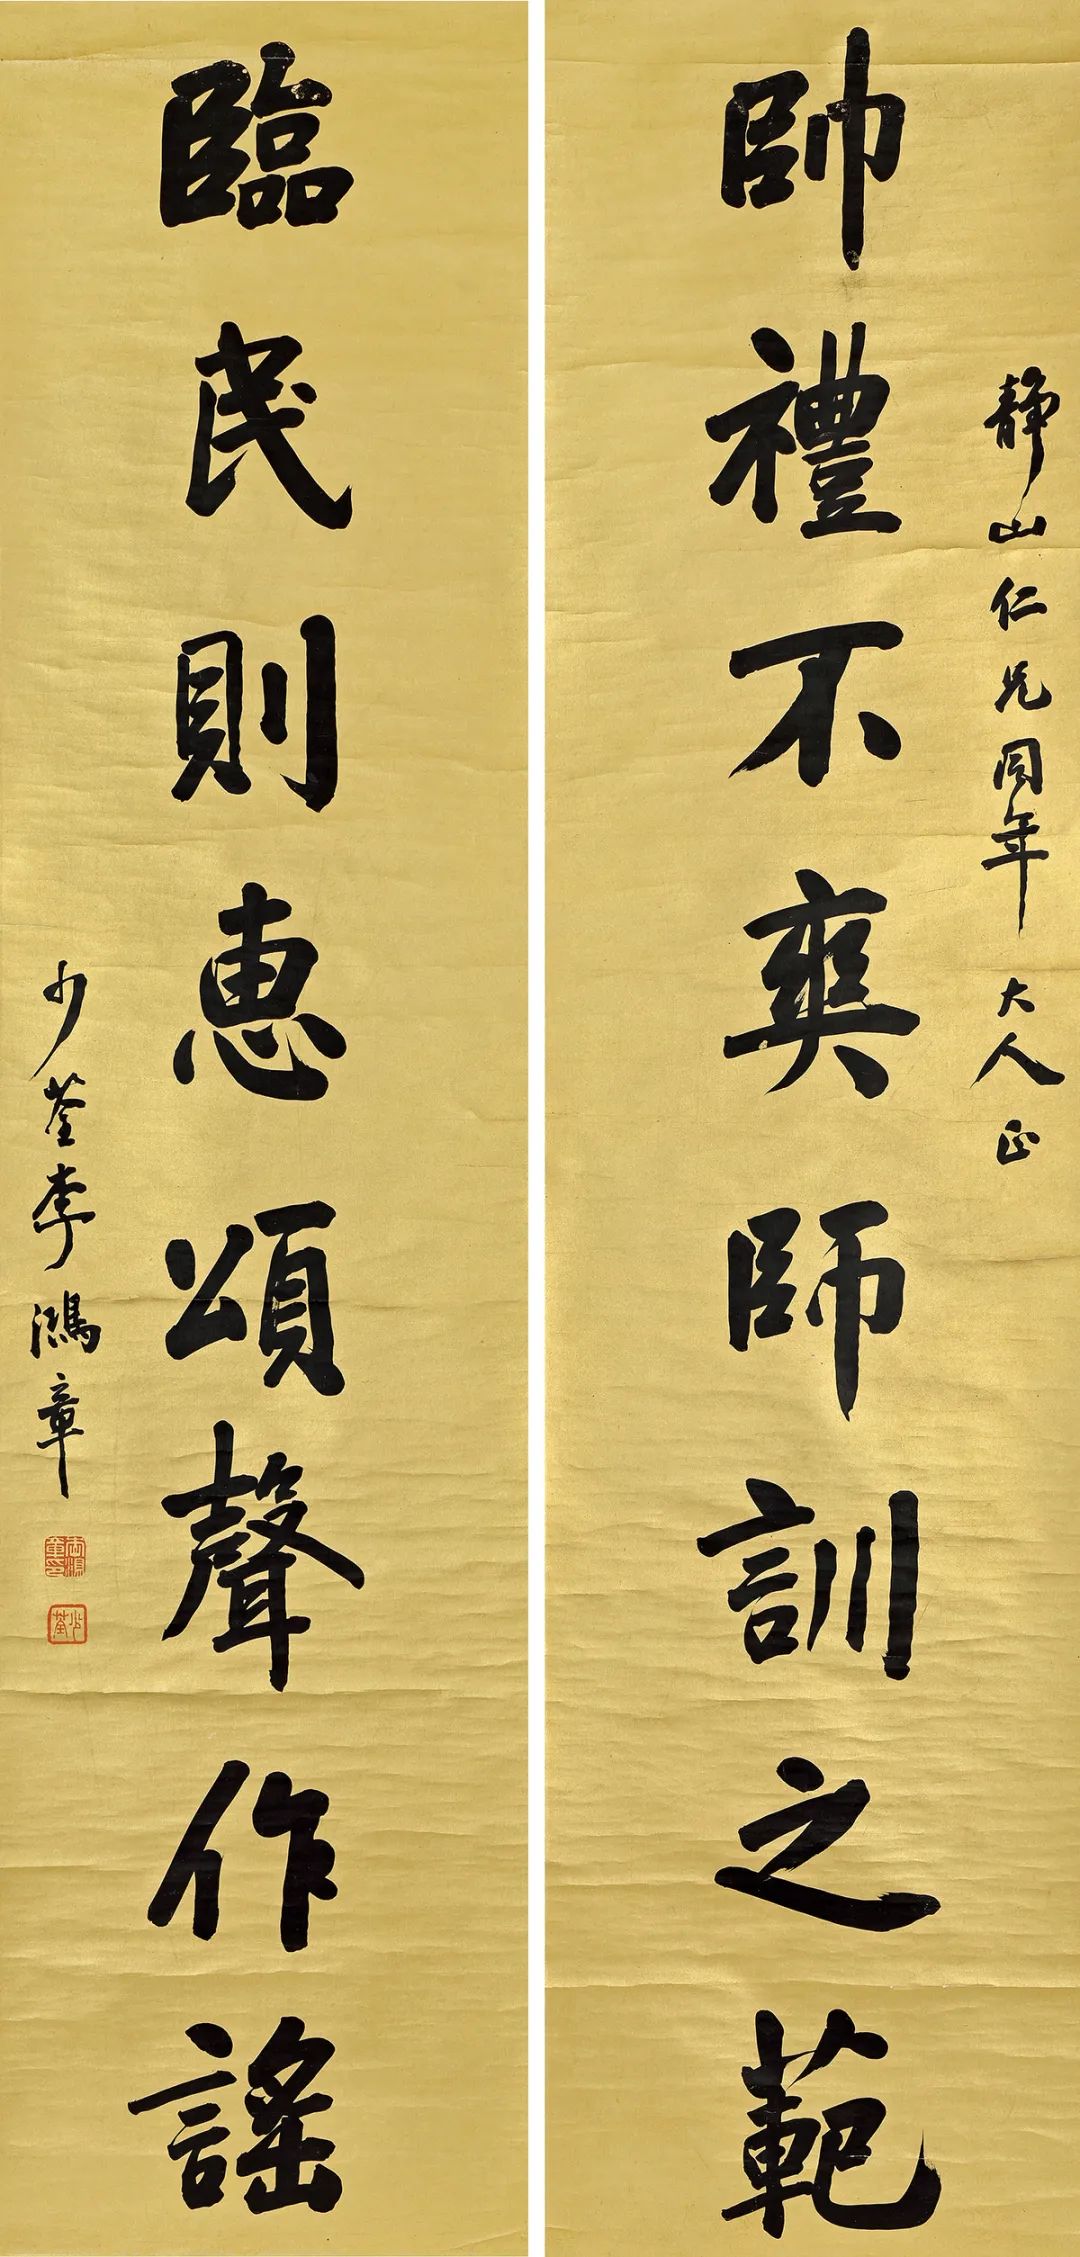 靜山仁兄同年大人正
帥禮不爽師訓之範
臨民則惠頌聲作謠
少荃李鴻章
李鴻章印
少荃